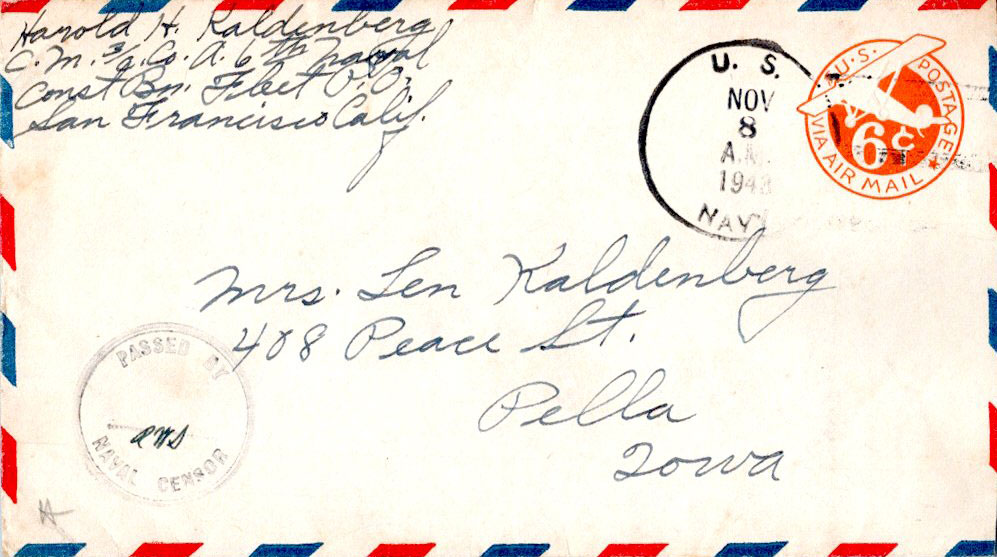 Harold H. Kaldenberg
C. M. 3/c. Co. A. 6th Naval
Const Bn. Fleet P.O.
San Francisco Calif.
U. S.
NOV
8
A.M.
NAVY
U.S. POSTAGE
6¢
VIA AIR MAIL
Mrs. Len Kaldenberg
408 Peace St.
Pella
Iowa
PASSED BY
NAVAL CENSOR